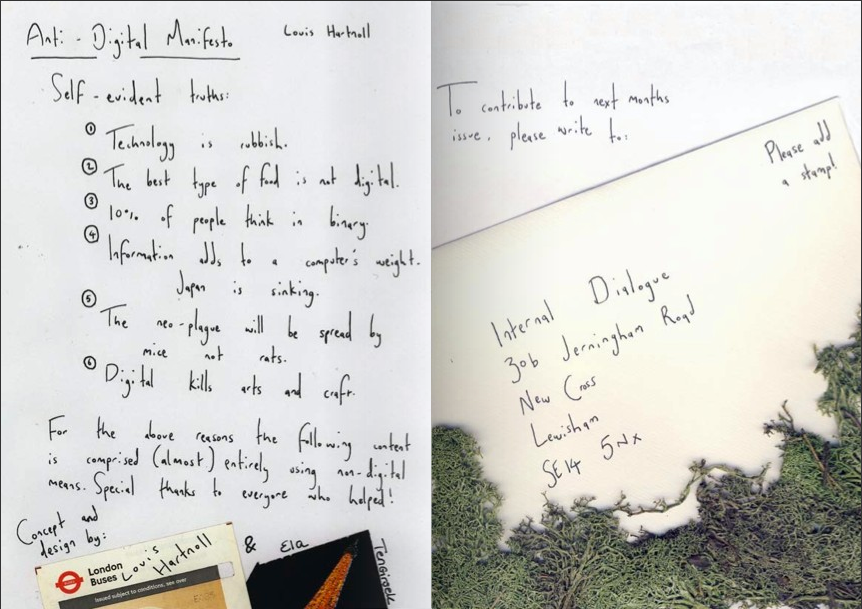 Anti-Digital Manifesto
Louis Hartnoll
Self-evident truths:
① Technology is rubbish.
② The best type of food is not digital.
③ 10% of people think in binary.
④ Information adds to a computer's weight.
Japan is sinking.
⑤ The neo-plague will be spread by
mice not rats.
⑥ Digital kills arts and craft.
For the above reasons the following content
is comprised (almost) entirely using non-digital
means. Special thanks to everyone who helped!
Concept and
design by:
London
Buses
Issued subject to conditions, see over
Louis
Hartnoll
& Ela
To contribute to next months
issue, please write to:
Please add
a stamp!
Internal Dialogue
30b Jerningham Road
New Cross
Lewisham
SE14 5NX